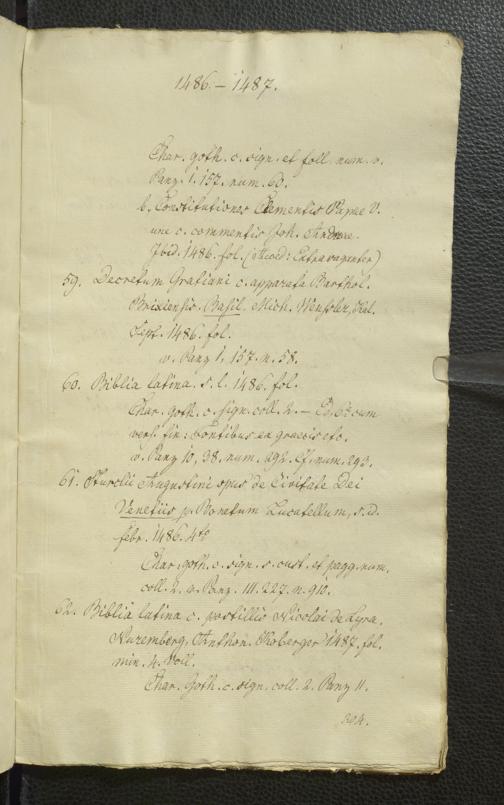 1486 – 1487.
Char. goth. c. sign. et foll. num. v.
Panz. I. 157. num. 60.
b. Constitutiones Clementis Papae V.
una c. commentis Joh. Andreae.
Ibid. 1486. fol. (Extravagantes)
59. Decretum Gratiani c. apparatu Barthol.
Brixiensis. Basil. Mich. Wenssler, Kal.
Sept. 1486. fol.
v. Panz. I. 157. n. 58.
60. Biblia latina. s. l. 1486. fol.
Char. goth. c. sign. coll. 2. – cum
vers. fin: Fontibus ex graecis etc.
v. Panz 10, 38. num. 292. cf. num. 293.
61. Augustini opus de Civitate Dei
Venetiis p. Bonetum Lucatellum, s. d.
febr. 1486. 4to
Char. goth. c. sign. s. cust. et pagg. num.
coll. 2. v. Panz. III. 227. n. 910.
62. Biblia latina c. postillis Nicolai de Lyra.
Nuremberg, Anthon. Koberger 1487. fol.
min. 4. Voll.
Char. Goth. c. sign. coll. 2. Panz II.
204.